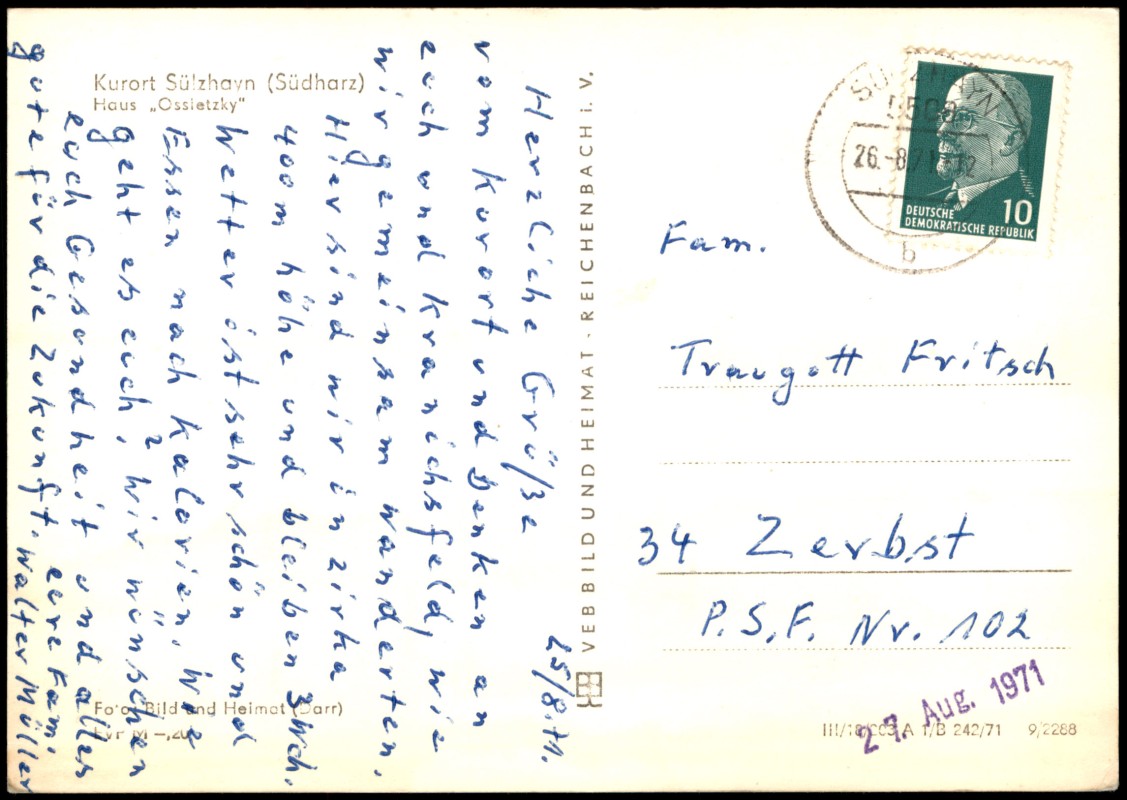 Kurort Sülzhayn (Südharz)
Haus „Ossietzky"
25/8.71.
Herzliche Grüße
vom Kurort und Denken an
euch und kranichsfeld, wie
wir gemeinsam wanderten.
Hier sind wir in zirka
400m höhe und bleiben 3Wch.
Wetter ist sehr schön und
Essen nach kalorien. Wie
geht es euch? Wir wünschen
euch Gesundheit und alles
gute für die Zukunft. eure Fam.
Walter Müller
Foto: Bild und Heimat (Darr)
EVP M –,20
VEB BILD UND HEIMAT · REICHENBACH i. V.
SÜLZHAYN
5508
26.-8.71-12
b
10
DEUTSCHE
DEMOKRATISCHE REPUBLIK
Fam.
Traugott Fritsch
34 Zerbst
P.S.F. Nr. 102
27. Aug. 1971
A 1/B 242/71 9/2288